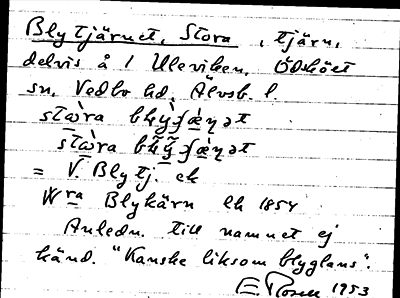 Blytjärnet, Stora, tjärn,
delvis å 1 Uleviken, Ödskölt
sn, Vedbo hd, Älvsb. l.
= V. Blytj. ek
Wra Blykärn lk 1854
Anledn. till namnet ej
känd. "Kanske liksom blyglans".
E Rosell 1953